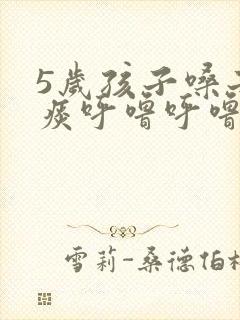 5歲孩子嗓子
痰呼嚕呼嚕
雪莉-桑德伯